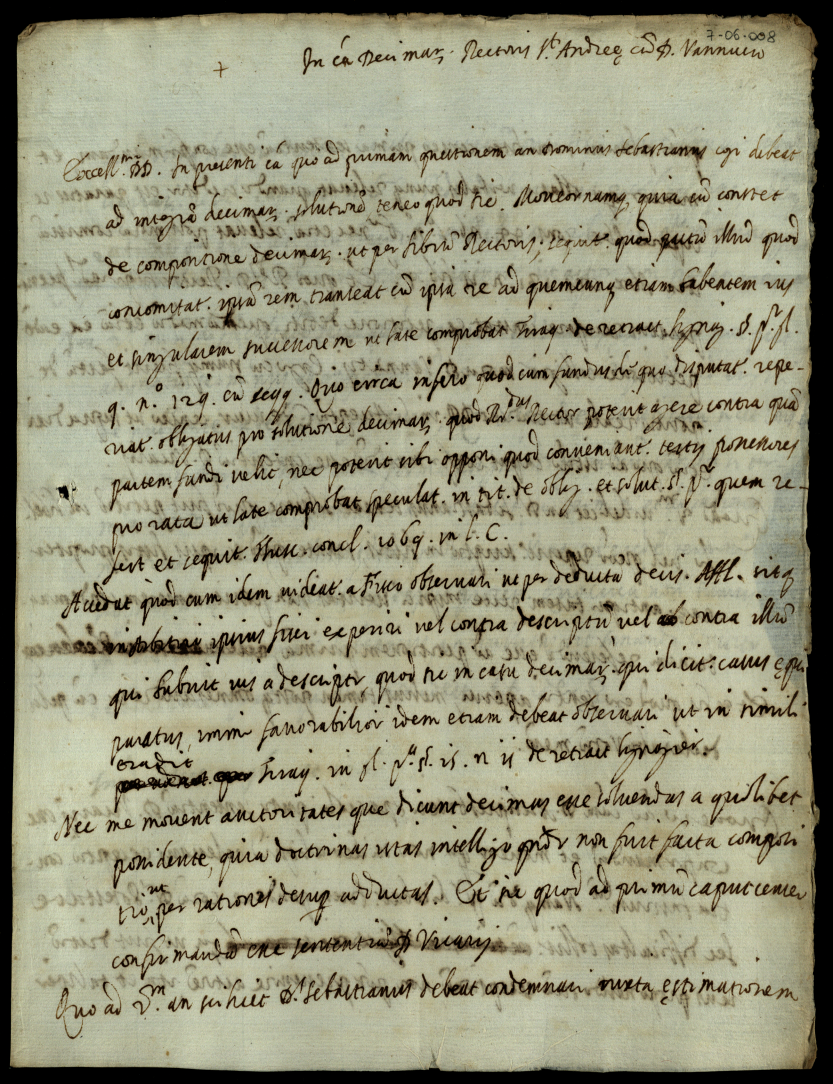 7-06.008
In cã Decimarꝫ. Rectoris S.ti Andreę cũ D. Vannucio
Excell.mi DD. In presenti cã quo ad primam questionem an Dominus Sebastianus cogi debeat
ad integrã decimarꝫ. solutionẽ teneo quod sic. Moveor namqꝫ quia cũ constet
de compositione decimarꝫ. ut per librũ Rectoris, sequit. quod quotũ illud quod
concomitat. ipsã rem transeat cũ ipsa re ad quemcunqꝫ etiam habentem ius
et singularem successorem ut late comprobat Tiraq. de retract. lignag. §. p.º gl.
9. n.º 129. cũ seqq. Quo circa infero quod cum fundus de quo disputat. repe-
riat. obligatus pro solutione decimarꝫ. quod R.dus Rector poterit agere contra quã
partem fundi velit, nec poterit sibi opponi quod conveniant. tertij possessores
pro rata ut late comprobat speculat. in tit. de oblig. et solut. §. p.º quem re-
fert et sequit. Tusc. concl. 1069. in l. C.
Accedat quod cum idem videat. a Fisco observari ut per deducta decis. Affl. sitqꝫ
ipsius fisci experiri vel contra descriptũ vel contra illũ
qui habuit ius a descripto, quod sic in casu decimarꝫ. qui dicit. casus ęqui
paratus, immo favorabilior idem etiam debeat observari ut in simili
tradit
Tiraq. in gl. p.ª §. 15. n 11 de retract lignagier.
Nec me movent auctoritates que dicunt decimas esse solvendas a quolibet
possidente, quia doctrinas istas intelligo quãdo non fuit facta composi
tio, ut per rationes desup adductas. Et sic quod ad primũ caput censeo
confirmandã esse sententiã D Vicarij
Quo ad 2.m an scilicet D. Sebastianus debeat condemnari iuxta ęstimationem